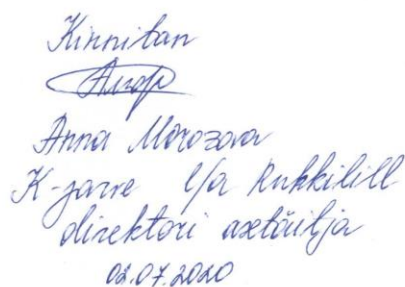 Kinnitan
Anna Morozova
K-Jarve l/a Rukkilill
direktori asetäitja
02.07.2020